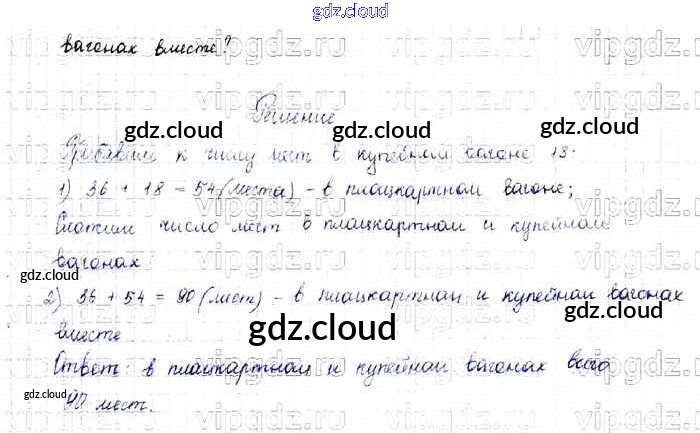 gdz.cloud
вагонах вместе?
Решение
Прибавим к числу мест в купейном вагоне 18:
1) 36 + 18 = 54 (места) - в плацкартном вагоне;
Сложим число мест в плацкартном и купейном
вагонах
2) 36 + 54 = 90 (мест) - в плацкартном и купейном вагонах
вместе
Ответ: в плацкартном и купейном вагонах всего
90 мест.
gdz.cloud
gdz.cloud
gdz.cloud
gdz.cloud
gdz.cloud
gdz.cloud
vipgdz.ru